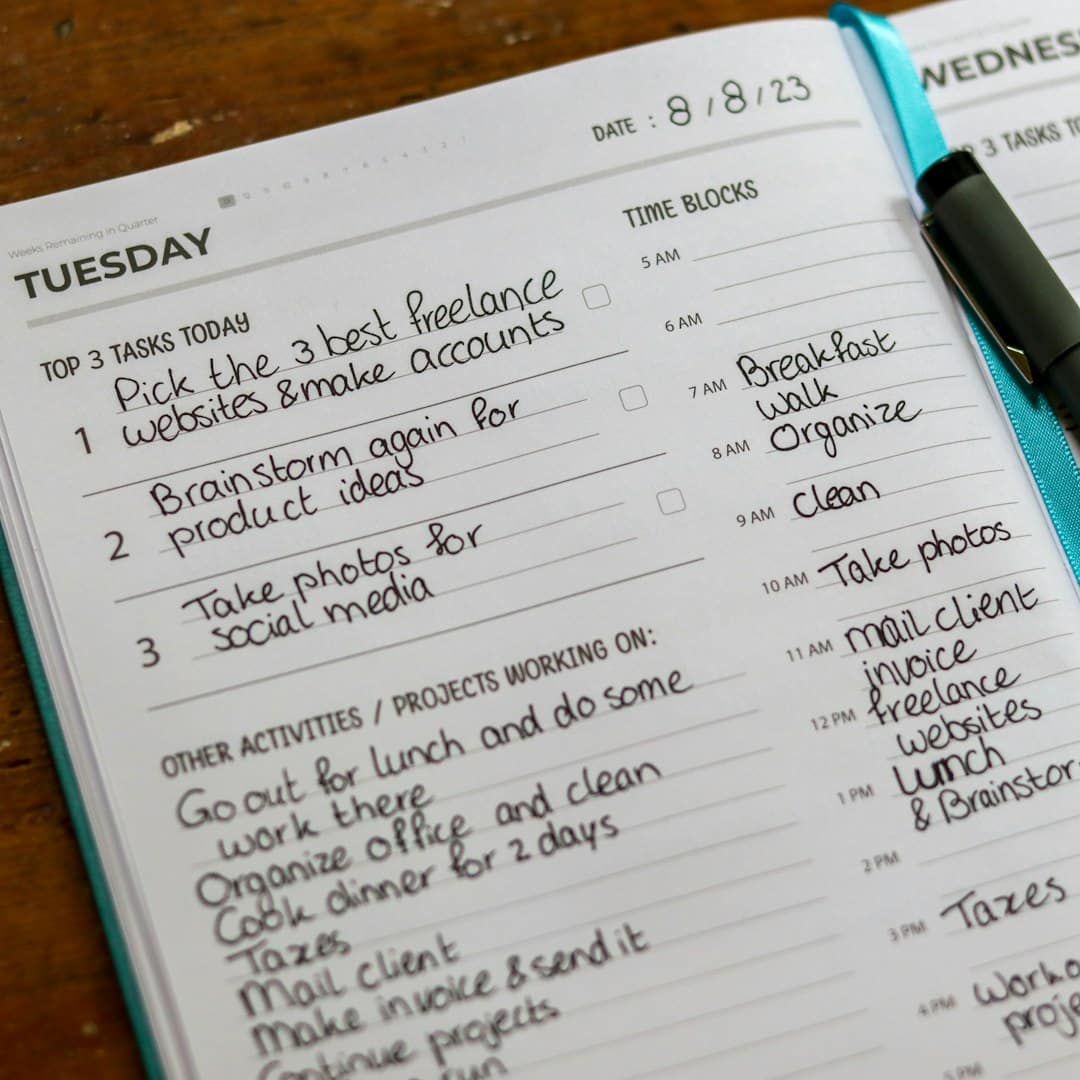 Weeks Remaining in Quarter
TUESDAY
DATE : 8 / 8 / 23
TOP 3 TASKS TODAY
Pick the 3 best freelance
1 websites & make accounts
Brainstorm again for
2 product ideas
Take photos for
3 social media
OTHER ACTIVITIES / PROJECTS WORKING ON:
Go out for lunch and do some
work there
Organize office and clean
Cook dinner for 2 days
Taxes
Mail client
Make invoice & send it
Continue projects
run
TIME BLOCKS
5 AM
6 AM
7 AM Breakfast
walk
8 AM Organize
9 AM Clean
10 AM Take photos
11 AM mail client
invoice
12 PM freelance
websites
1 PM Lunch
& Brainstor
2 PM
3 PM Taxes
4 PM Work o
proje
5 PM
WEDNES
3 TASKS TO